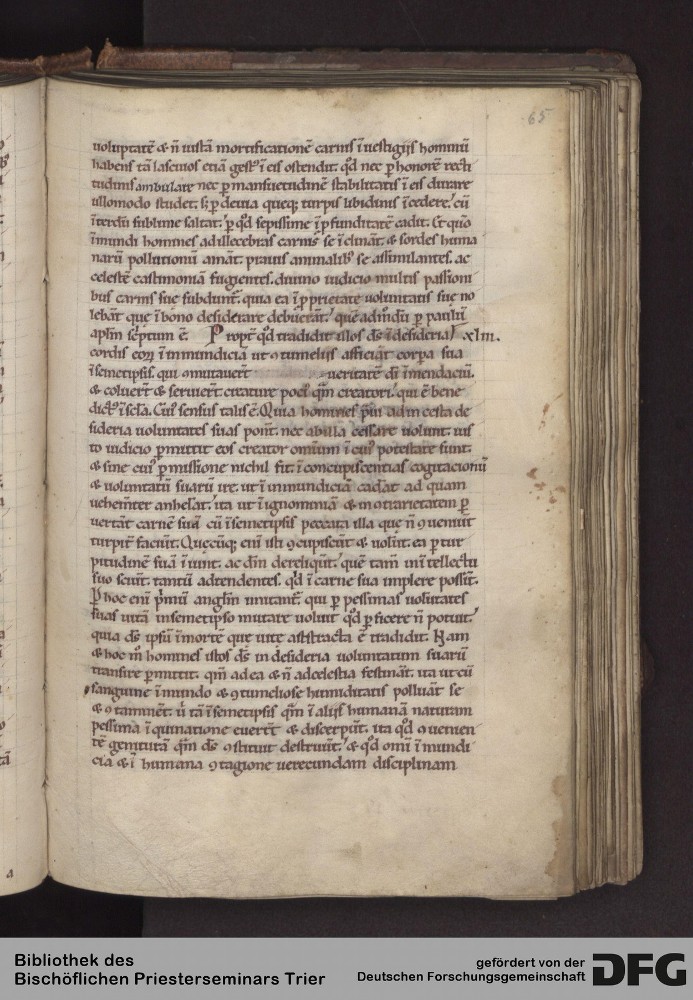 65
uoluptatē & n̄ iustā mortificationē carnis ī uestigijs hominū
habens tā lasciuos etiā gest⁹ ī eis ostendit. qd̄ nec ꝑ honorē recti
tudinis ambulare nec ꝑ mansuetudinē stabilitatis ī eis durare
ullomodo studet. sꝫ ꝑ deuia queqꝫ turpis libidinis īcedere. cū
īterdū sublime saltat. ꝑ qd̄ sepissime ī ꝓfunditatē cadit. Et qūo
īmundi homines ad illecebras carnis se īclināt. & sordes huma
narū pollutionū amāt. prauis animalib⁹ se assimilantes. ac
celestē castimoniā fugientes. diuino iudicio multis passioni
bus carnis sue subdunt̄. quia ea ī ꝓprietate uoluntatis sue no
lebāt que ī bono desiderare debuerāt. quē admdū ꝑ paulū
aplm̄ scꝛiptum ē. Propt̄ qd̄ tradidit illos ds̄ ī desideria xlııı.
cordis eoꝝ ī inmundicia ut ꝯtumelijs afficiāt corpa sua
ī semetipsis. qui ꝯmutauer̄t ueritatē di ī mendaciū.
& coluer̄t & seruier̄t creature poci⁹ qm̄ creatori. qui ē bene
dict⁹ ī scl̄a. Cui⁹ sensus talis ē. Quia homines ad incesta de
sideria uoluntates suas ponūt. nec ab illa cessare uolunt. ius
to iudicio ꝑmittit eos creator omniū ī cui⁹ potestate sunt.
& sine cui⁹ ꝑmissione nichil fit. ī concupiscentias cogitacionū
& uoluntatū suarū ire. ut ī inmundiciā cadāt ad quam
uehemīter anhelāt. ita ut ī ignominiā & in ꝯtrarietatem ꝑ
uertāt carnē suā cū ī semetipsis peccata illa que n̄ ꝯueniūt
turpit̄ faciūt. Quecūqꝫ eni isti ꝯcupiscūt & uolūt. ea ꝑ tur
pitudinē suā īueniūt. ac dm̄ derelinqūt. quē tam̄ in intellectu
suo sciūt. tantū adtendentes. qd̄ ī carne sua implere possūt.
Per hoc eni primū angl̄m imitant̄. qui ꝑ pessimas uolūtates
suas uitā in semetipso mutare uoluit qd̄ ꝑficere n̄ potuit.
quia ds̄ ipsū ī mortē que uite abstracta ē tradidit. Nam
& hoc m̊ homines istos ds̄ in desideria uoluntatum suarū
transire ꝑmittit. qm̄ ad ea & n̄ ad celestia festināt. ita ut cū
sanguine īmundo & ꝯtumeliose humiditatis polluāt se
& ꝯtaminēt. ū tā ī semetipsis qm̄ ī alijs humanā naturam
pessima ī quinatione euerēt & discerpūt. ita qd̄ ꝯuenien
tē geniturā qm̄ ds̄ ꝯstituit destruūt. & qd̄ omī īmundi
cia & ī humana ꝯtagione uerecundam disciplinam
Bibliothek des
Bischöflichen Priesterseminars Trier
gefördert von der
Deutschen Forschungsgemeinschaft
DFG